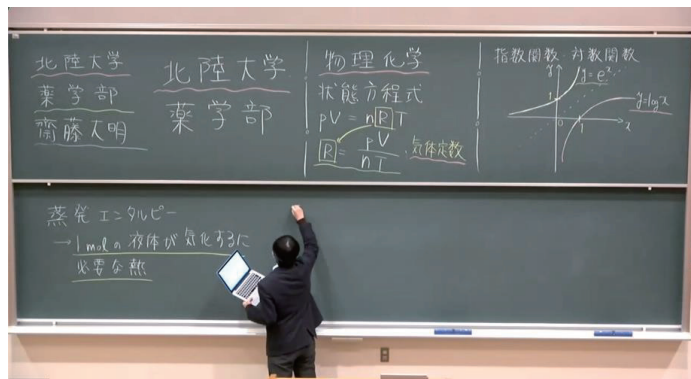 北陸大学
薬学部
齋藤大明
北陸大学
薬学部
物理化学
状態方程式
pV = nRT
R = pV/nT : 気体定数
指数関数・対数関数
y
y=eˣ
1
y=log x
0
1
x
蒸発エンタルピー
→ 1molの液体が気化するに
必要な熱